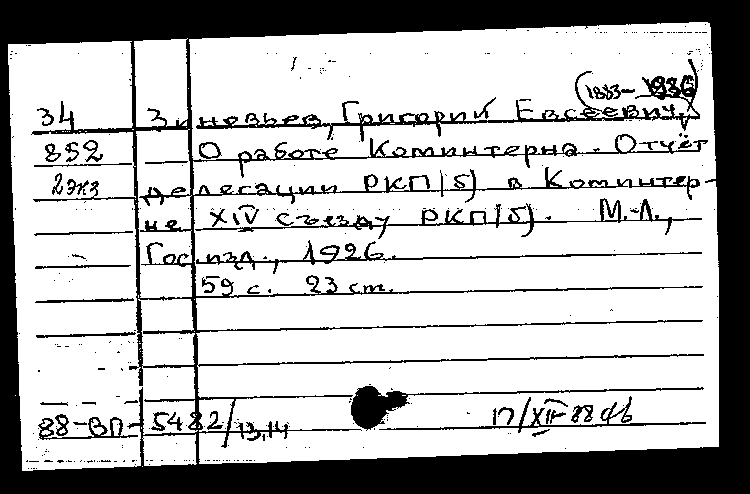 (1883-1936)
34 Зиновьев, Григорий Евсеевич,
852 О работе Коминтерна. Отчёт
2 экз делегации РКП(б) в Коминтер-
не XIV съезду РКП(б). М.-Л.,
Госизд., 1926.
59 с. 23 см.
88-ВП-5482/13,14 17/XII-88